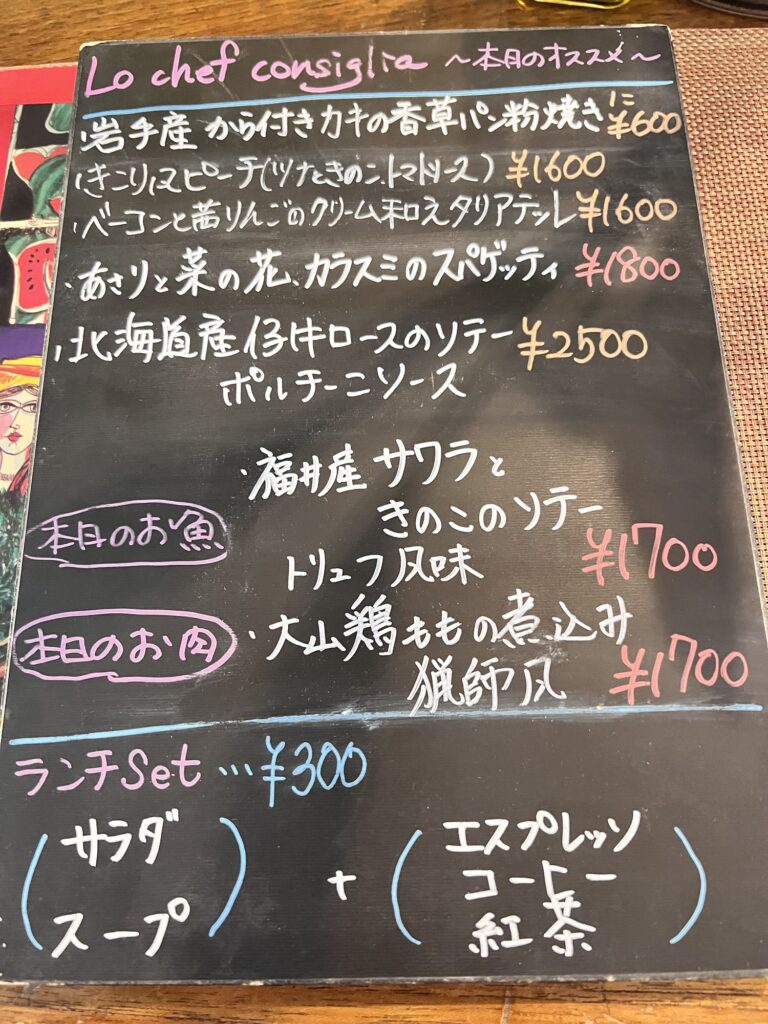 Lo chef consiglia ～本日のオススメ～
・岩手産 から付きカキの香草パン粉焼き 1コ ¥600
・きこり風ピーチ(ツナときのこ、トマトソース) ¥1600
・ベーコンと茜りんごのクリーム和えタリアテッレ ¥1600
・あさりと菜の花、カラスミのスパゲッティ ¥1800
・北海道産仔牛ロースのソテー ¥2500
ポルチーニソース
本日のお魚
・福井産サワラと
きのこのソテー
トリュフ風味 ¥1700
本日のお肉
・大山鶏ももの煮込み
猟師風 ¥1700
ランチSet …¥300
(サラダ
スープ)
+
(エスプレッソ
コーヒー
紅茶)